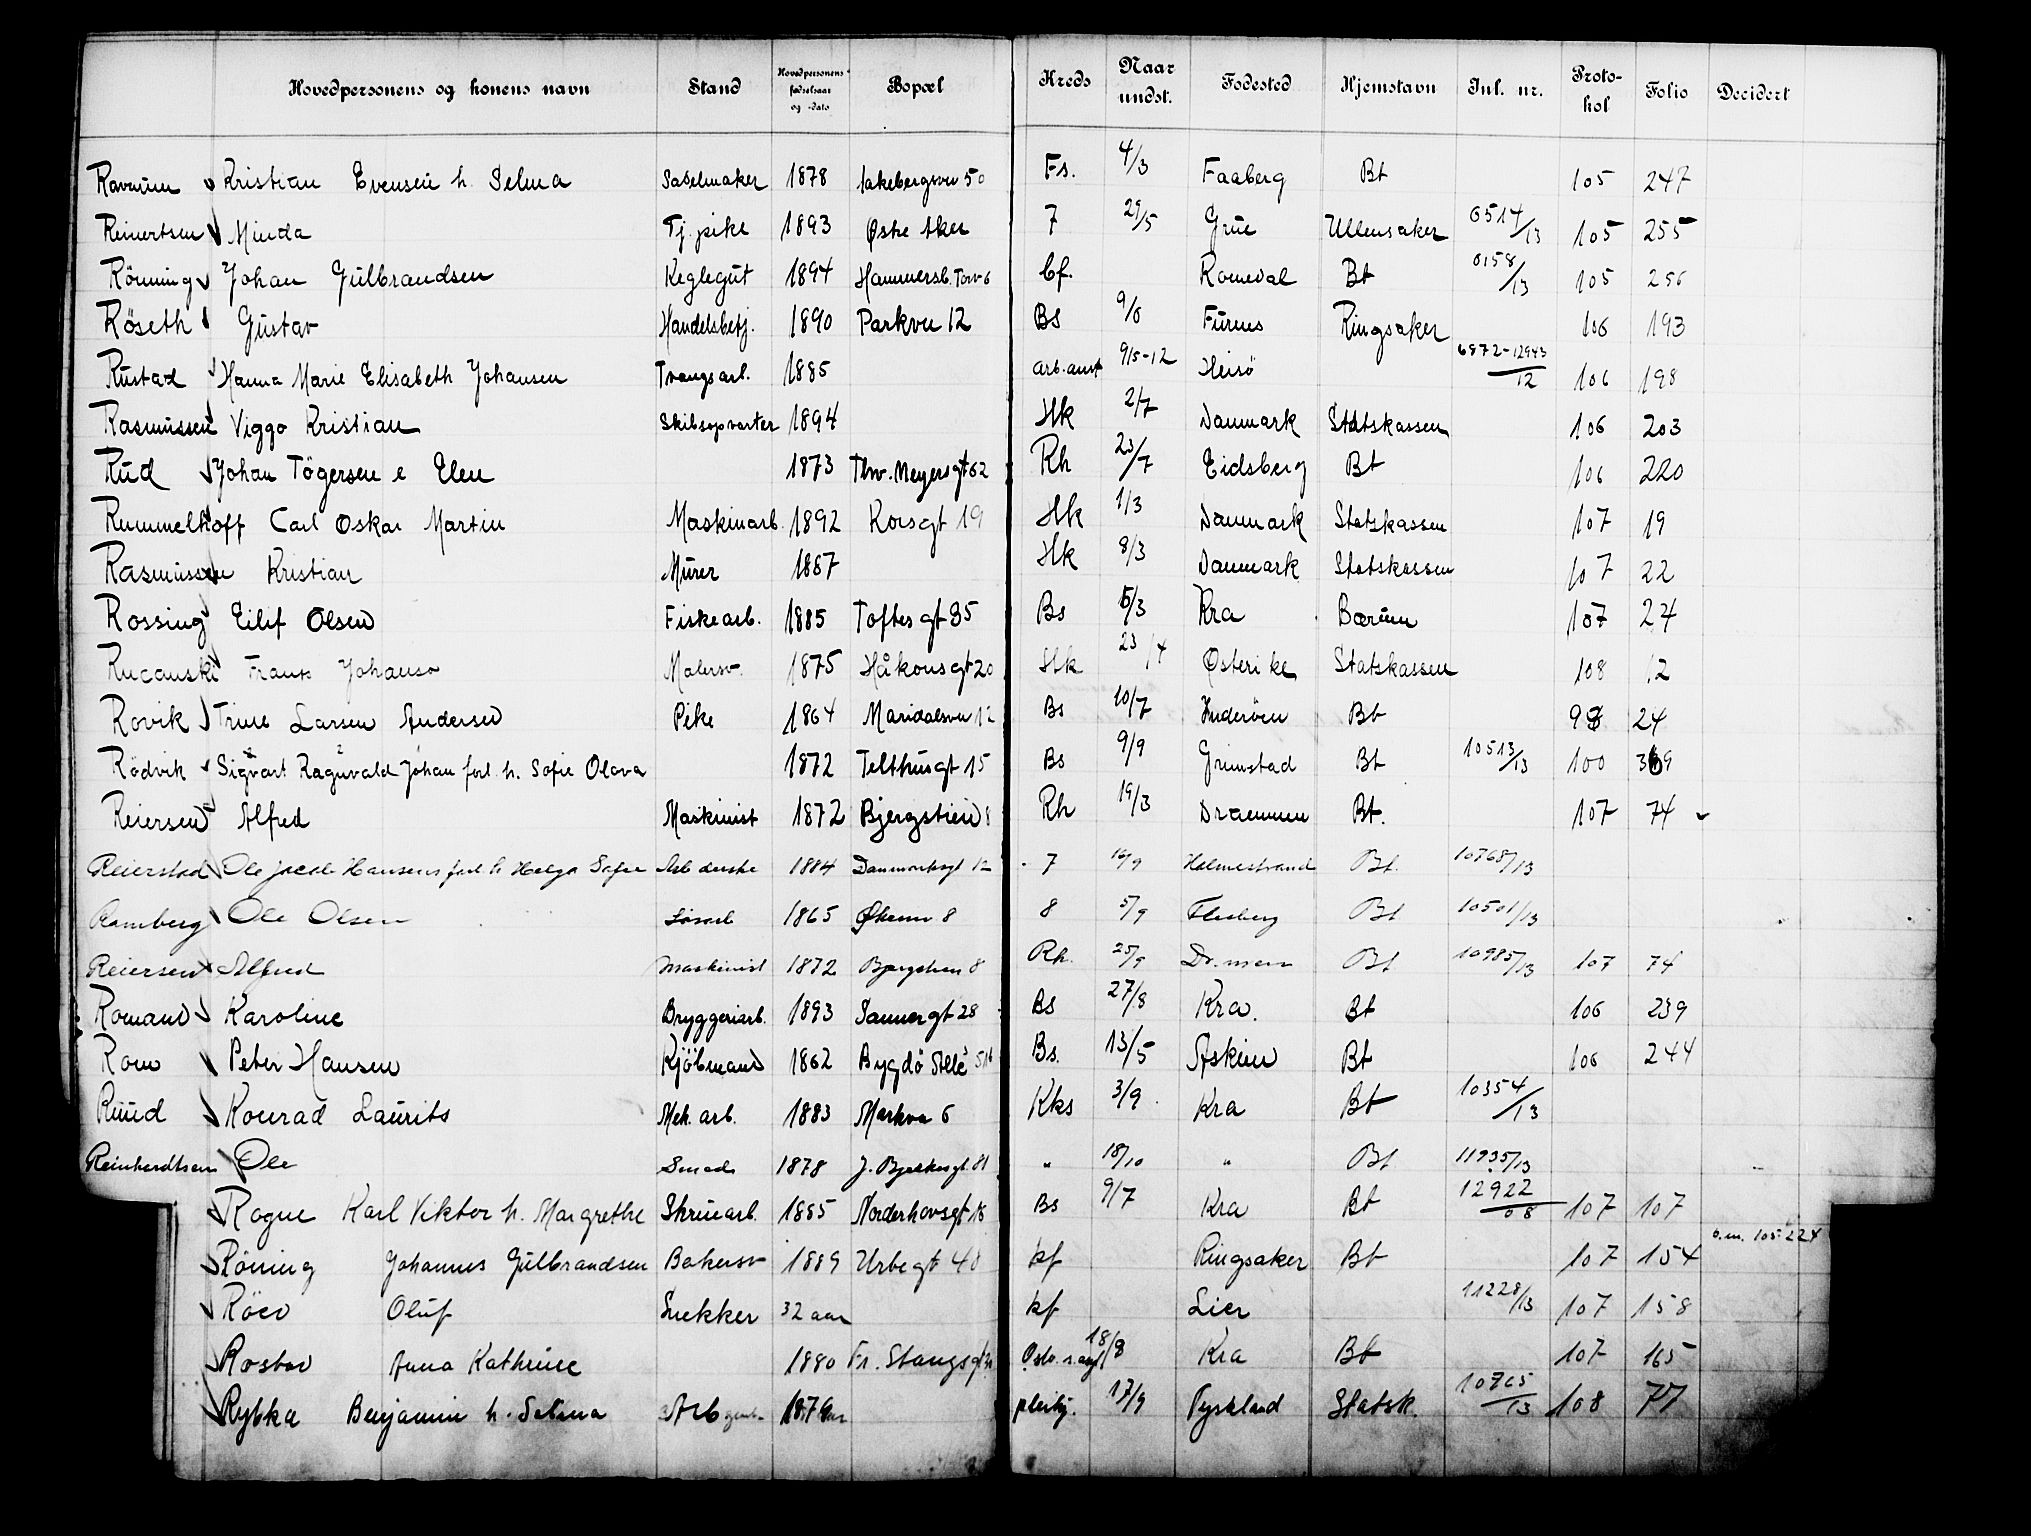 Hovedpersonens og konens navn Stand Hovedpersonens fødselsaar og -dato Bopæl Kreds Naar undst. Fødested Hjemstavn Jnl. nr. Proto-kol Folio Decidert
Kristian Evensen h. Selma Sadelmaker 1878 50 Fs. 4/3 Faaberg Bt 105 247
Reinertsen Minda Tj.pike 1893 Østre Aker 7 29/5 Grue Ullensaker 6514/13 105 255
Rönning Johan Gulbrandsen Keglegut 1894 Hammersb. Torv 6 Romedal Bt 0158/13 105 256
Röseth Gustav Handelsbetj. 1890 Parkvn 12 Bs 9/6 Furnes Ringsaker 106 193
Rustad Hanna Marie Elisabeth Johansen Tvangsarb. 1885 arb.anst 9/5-12 6872-12943/12 106 198
Rasmussen Viggo Kristian Skibsopvarter 1894 Hk 2/7 Danmark Statskassen 106 203
Rud Johan Tögersen e Elen 1873 Thv. Meyersgt 62 Rh 23/7 Eidsberg Bt 106 220
Rummelhoff Carl Oskar Martin Maskinarb. 1892 Korsgt 19 Hk 1/3 Danmark Statskassen 107 19
Rasmussen Kristian Murer 1867 Hk 8/3 Danmark Statskassen 107 22
Rossing Eilif Olsen Fiskearb. 1885 Toftesgt 35 Bs 5/3 Kra Bærum 107 24
Rucanski Frants Johansø Malersv. 1875 Håkonsgt 20 Hk 23/4 Østerike Statskassen 108 12
Rovik Trine Larsen Andersen Pike 1864 Maridalsvn 12 Bs 10/7 Inderöen Bt 98 24
Rödvik Sigvart Ragnvald Johan forl. h. Sofie Olava 1872 Telthusgt 15 Bs 9/9 Grimstad Bt 10513/13 100 369
Reiersen Alfred Maskinist 1872 Bjergstien 8 Rh 19/3 Drammen Bt. 107 74
Reierstad Ole Jacob Hansens forl h Helga Sofie 1884 Danmarksgt 12 7 16/9 Holmestrand Bt. 10768/13
Ramberg Ole Olsen Løsarb 1865 Økern 8 8 5/9 Flesberg Bt 10501/13
Reiersen Alfred Maskinist 1872 Bjergstien 8 Rh. 25/9 Dr.men Bt 10985/13 107 74
Romand Karoline Bryggeriarb. 1893 Sannergt 28 Bs 27/8 Kra. Bt 106 239
Rom Peter Hansen Kjöbmand 1862 Bygdö Allé Bs. 13/5 Askim Bt 106 244
Ruud Konrad Laurits Mek. arb. 1883 Markvn 6 Kks 3/9 Kra Bt 10354/13
Reinhardtsen Ole Smed 1878 J. Bjelkesgt 81 " 18/10 " Bt 11935/13
Rogne Karl Viktor h. Margrethe Skruearb. 1885 Norderhovsgt 18 Bs 9/7 Kra Bt 12922/08 107 107
Rönning Johannes Gulbrandsen Bakersv 1889 Urbegt 48 kf Ringsaker Bt 107 154 o.m. 105-224
Röed Oluf Snekker 32 aar kf Lier 11228/13 107 158
Rostad Anna Kathrine 1880 Fr. Stangsgt 18/8 Kra Bt 107 165
Rybka Benjamin h. Salma Arb 1876 pleietj. 17/9 Tyskland Statsk. 10765/13 108 77